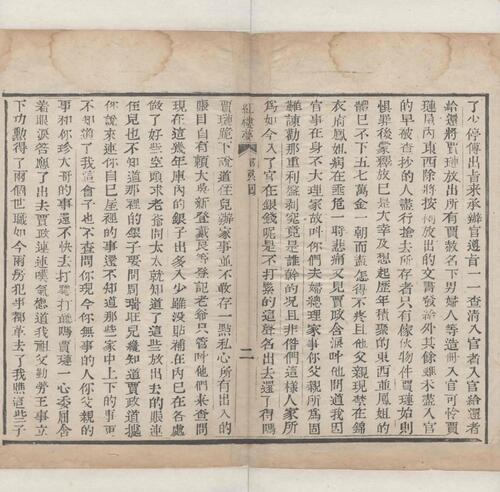 了少停傳出旨來承辦官遵旨一一查清入官者入官給還者
給還將賈璉放出所有賈赦名下男婦人等造冊入官可憐賈
璉屋內東西除將按例放出的文書發給外其餘雖未盡入官
的早被查抄的人盡行搶去所存者只有傢伙物件賈璉始則
懼罪後蒙釋放已是大幸及想起歷年積聚的東西並鳳姐的
體己不下五七萬金一朝而盡怎得不疼且他父親現禁在錦
衣府鳳姐病在垂危一時悲痛又見賈政含淚叫他問道我因
官事在身不大理家故叫你們夫婦總理家事你父親所為固
難諫勸那重利盤剝究竟是誰幹的況且非偺們這樣人家所
為如今入了官在銀錢呢是不打緊的這聲名出去還了得嗎
紅樓夢 回 二
賈璉跪下說道侄兒辦家事並不敢存一點私心所有出入的
賬目自有賴大吳新登戴良等登記老爺只管叫他們來查問
現在這幾年庫內的銀子出多入少雖沒貼補在內已在各處
做了好些空頭求老爺問太太就知道了這些放出去的賬連
侄兒也不知道那裡的銀子要問周瑞旺兒纔知道賈政道據
你說來連你自己屋裡的事還不知道那些家中上下的事更
不知道了我這會子也不查問你現今你無事的人你父親的
事和你珍大哥的事還不快去打聽打聽嗎賈璉一心委屈含
着眼淚答應了出去賈政連連嘆氣想道我祖父勤勞王事立
下功勲得了兩個世職如今兩房犯事都革去了我瞧這些子